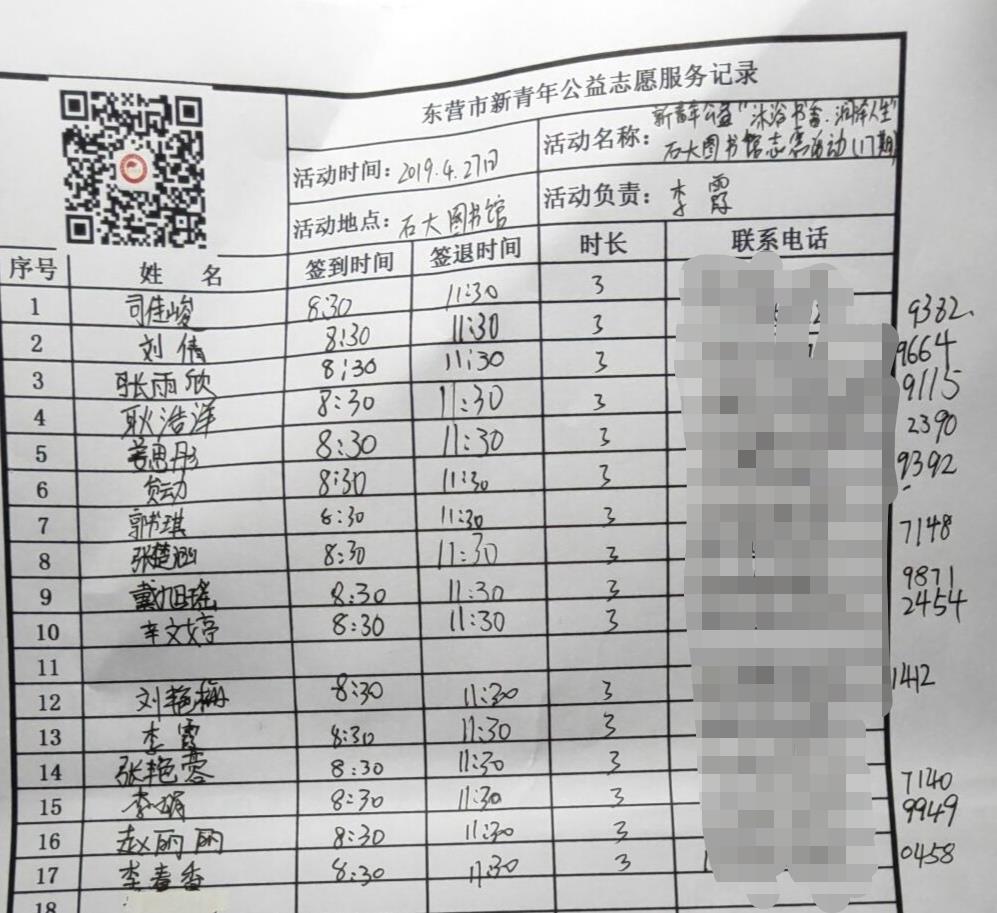 东营市新青年公益志愿服务记录
活动时间：2019.4.27日
活动名称：新青年公益"沐浴书香·润泽人生"
石大图书馆志愿活动(17期)
活动地点：石大图书馆
活动负责：李霞
序号 姓名 签到时间 签退时间 时长 联系电话
1 司佳峻 8:30 11:30 3 9382
2 刘倩 8:30 11:30 3 9664
3 张雨欣 8:30 11:30 3 9115
4 耿浩洋 8:30 11:30 3 2390
5 姜思彤 8:30 11:30 3 9392
6 8:30 11:30 3
7 郭书琪 8:30 11:30 3 7148
8 张楚涵 8:30 11:30 3
9 戴旭瑶 8:30 11:30 3 9871
10 辛文婷 8:30 11:30 3 2454
11
12 刘艳梅 8:30 11:30 3 1412
13 李霞 8:30 11:30 3
14 张艳蓉 8:30 11:30 3
15 李娟 8:30 11:30 3 7140
16 赵丽丽 8:30 11:30 3 9949
17 李春香 8:30 11:30 3 0458
18